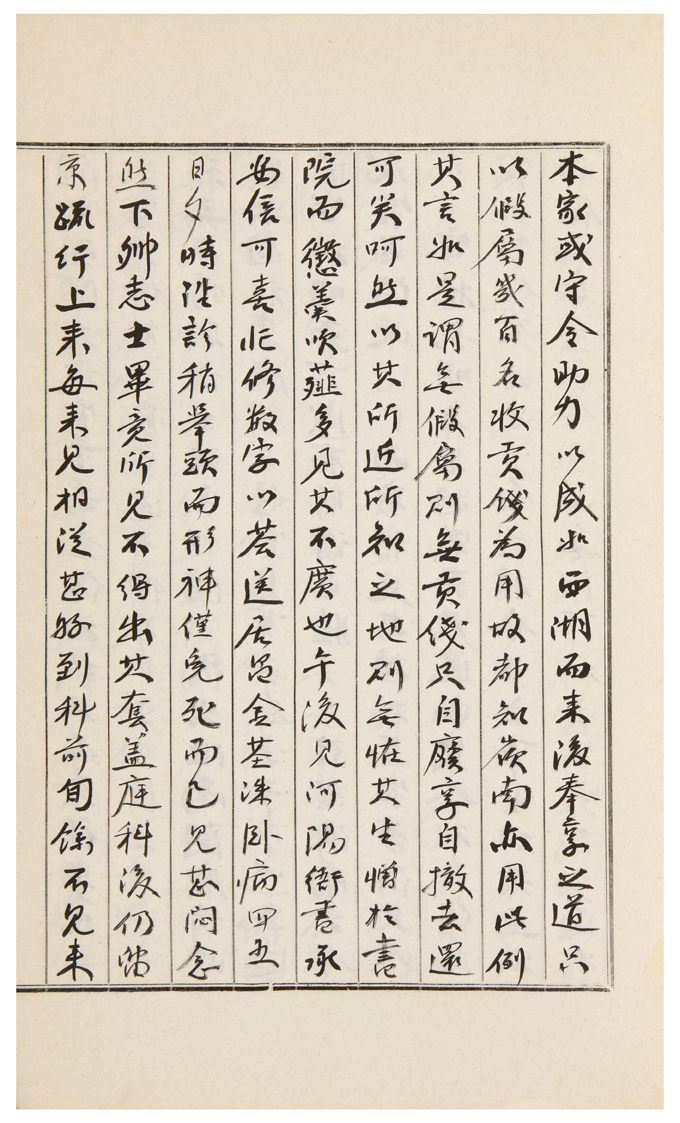 本家或守令助力以成如西湖而来後奉享之道只
以假属幾百名收貢錢為用故都知嶺南亦用此例
其言如是謂無假属則無貢錢只自廢享自撤去還
可笑呵然以其所近所知之地則無怪其生憎於書
院而懲羹吹薤多見其不廣也午後見河陽衙書承
安信可喜忙修数字以荅送居昌金基洙卧病四五
日夕時往診稍舉頭而形神僅免死而已見甚悶念
然下鄉志士畢竟所見不得出其套盖庭科後仍留
京踈行上来每来見相從甚好到科前旬餘不見来